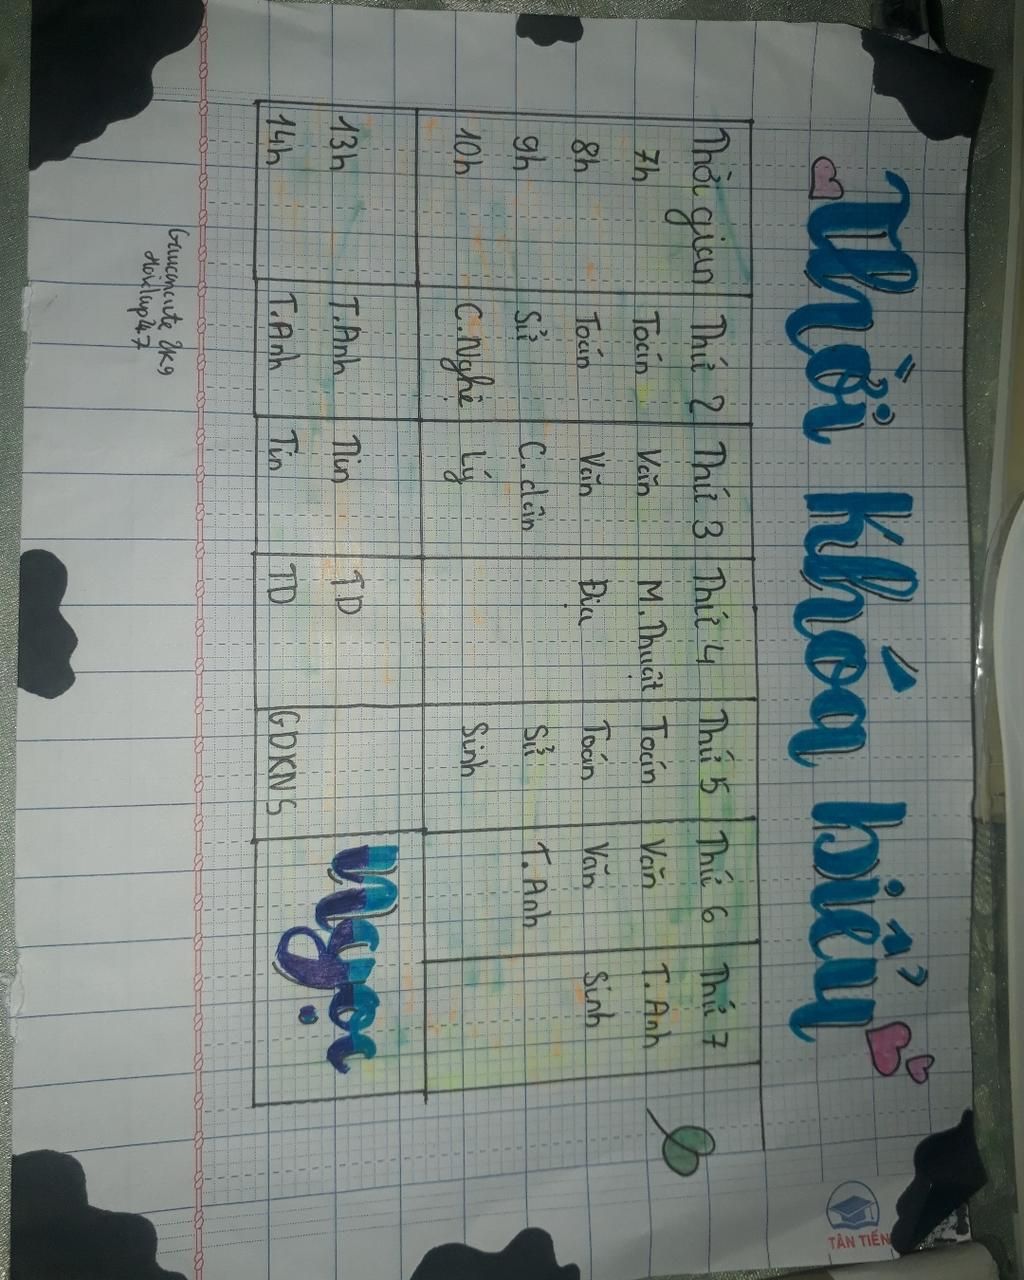 Thời khóa biểu
Thời gian Thứ 2 Thứ 3 Thứ 4 Thứ 5 Thứ 6 Thứ 7
7h Toán Văn M.Thuật Toán Văn T.Anh
8h Toán Văn Địa Toán Văn Sinh
9h Sử C.dân Sử T.Anh
10h C.Nghệ Lý Sinh
13h T.Anh Tin TD
14h T.Anh Tin TD GDKNS
Ngọc
TÂN TIẾN